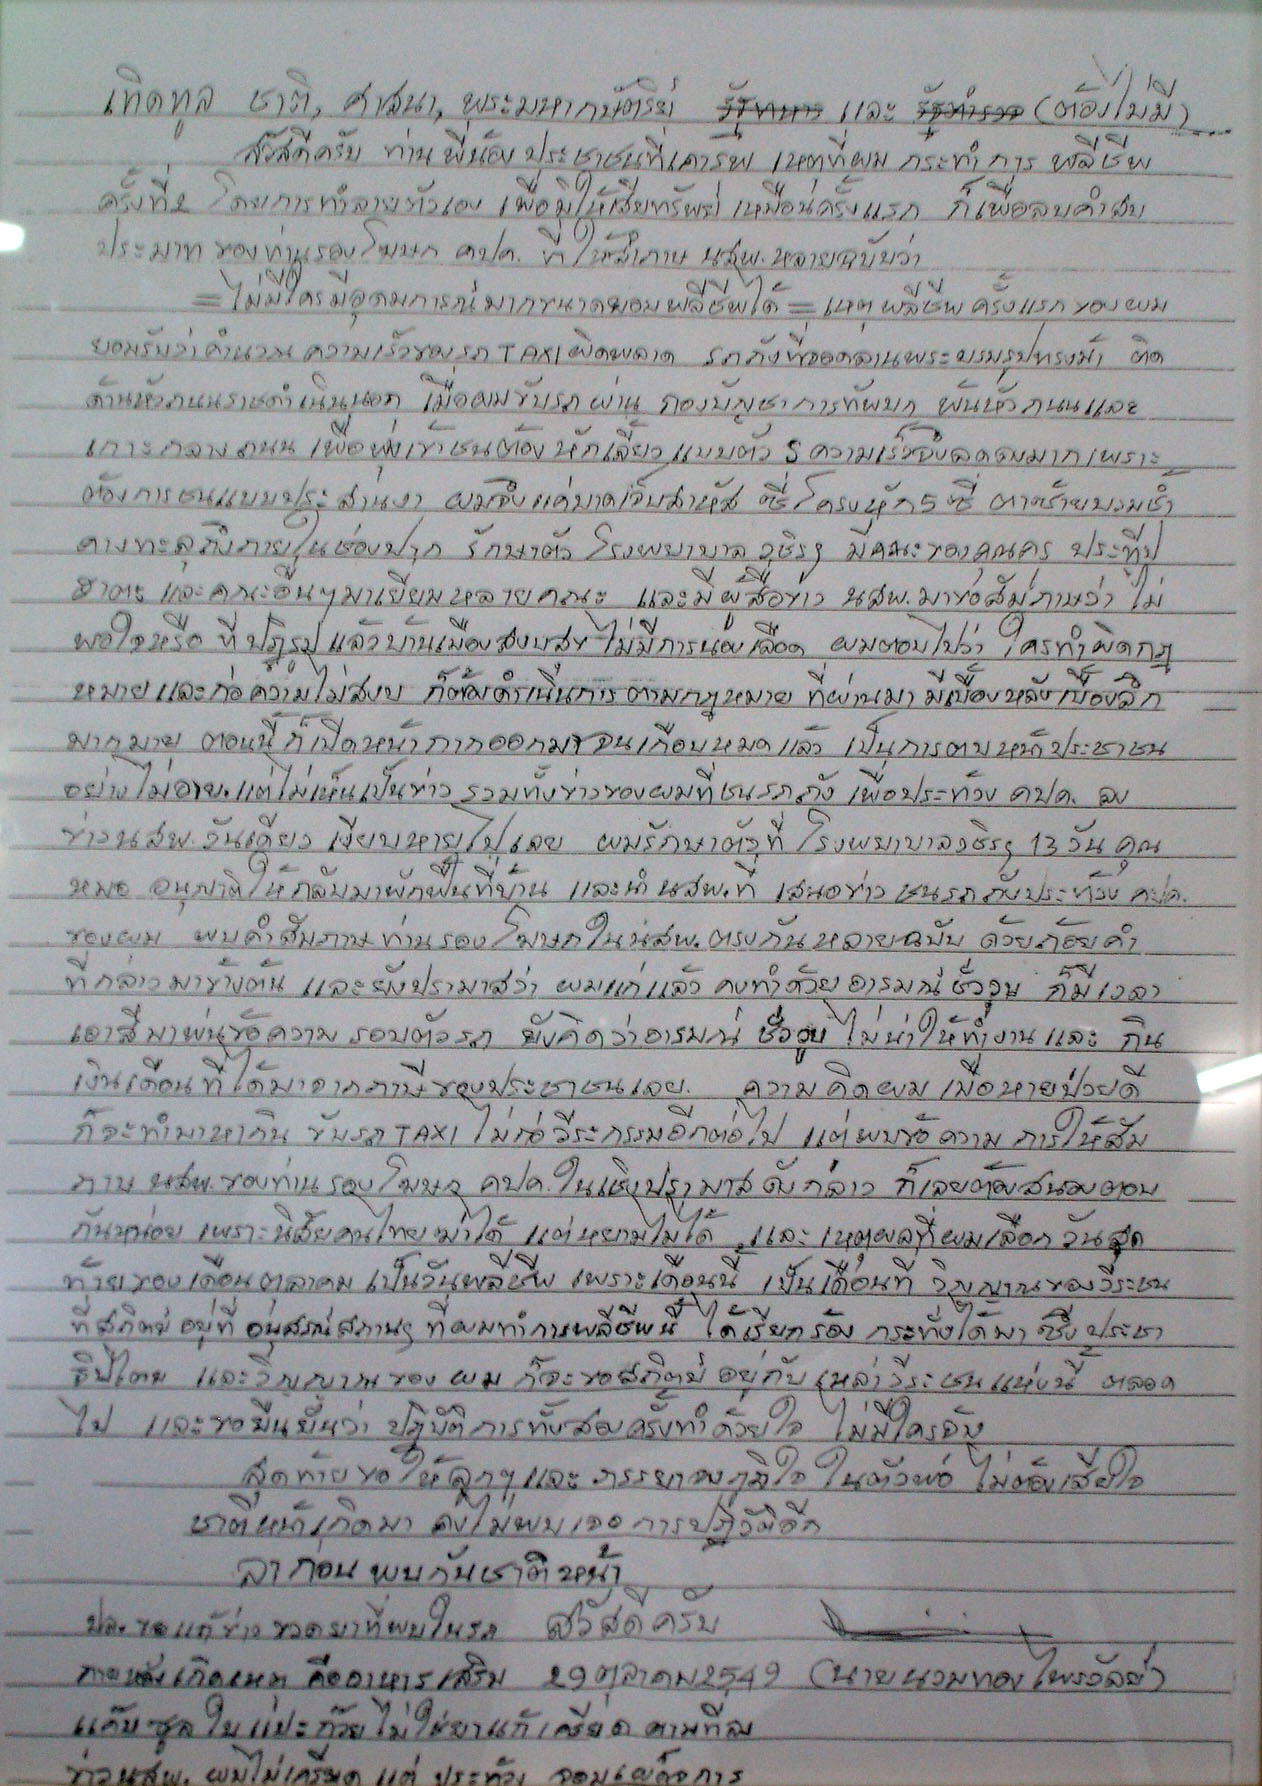 เทิดทูล ชาติ, ศาสนา, พระมหากษัตริย์ รัฐทหาร และ รัฐตำรวจ (ต้องไม่มี)
สวัสดีครับ ท่านพี่น้องประชาชนที่เคารพ เหตุที่ผม กระทำการ พลีชีพ
ครั้งที่ 2 โดยการทำลายตัวเอง เพื่อมิให้เสียทรัพย์ เหมือนครั้งแรก ก็เพื่อลบคำสบ
ประมาท ของท่านรองโฆษก คปค. ที่ให้สำภาษ นสพ. หลายฉบับว่า
= ไม่มีใครมีอุดมการณ์มากขนาดยอมพลีชีพได้ = เหตุพลีชีพครั้งแรกของผม
ยอมรับว่าคำนวณ ความเร็วของรถ TAXI ผิดพลาด รถถังที่จอดลานพระบรมรูปทรงม้า ติด
ด้านหัวถนนราชดำเนินนอก เมื่อผมขับรถผ่าน กองบัญชาการทัพบก พ้นหัวถนนและ
เกาะกลางถนน เพื่อพุ่งเข้าชนต้อง หักเลี้ยวแบบตัว S ความเร็วจึงลดลงมากเพราะ
ต้องการชนแบบประสานงา ผมจึงแค่บาดเจ็บสาหัส ซี่โครงหัก 5 ซี่ ตาซ้ายบวมช้ำ
คางทะลุถึงภายในช่องปาก รักษาตัว โรงพยาบาล วชิรฯ มีคณะของคุณครู ประทีป
ฮาตะ และคณะอื่นๆมาเยี่ยมหลายคณะ และมีผู้สื่อข่าว นสพ. มาขอสัมภาษว่า ไม่
พอใจหรือ ที่ปฏิรูป แล้วบ้านเมืองสงบสุข ไม่มีการนองเลือด ผมตอบไปว่า ใครทำผิดกฎ
หมายและก่อความไม่สงบ ก็ต้องดำเนินการตามกฎหมาย ที่ผ่านมา มีเบื้องหลังเบื้องลึก
มากมาย ตอนนี้ก็เปิดหน้ากากออกมาจนเกือบหมดแล้ว เป็นการตบหน้าประชาชน
อย่างไม่อาย. แต่ไม่เห็นเป็นข่าว รวมทั้งข่าวของผมที่ชนรถถัง เพื่อประท้วง คปค. ลง
ข่าว นสพ. วันเดียว เงียบหายไปเลย ผมรักษาตัวที่ โรงพยาบาลวชิรฯ 13 วัน คุณ
หมอ อนุญาติให้กลับมาพักฟื้นที่บ้าน และนำ นสพ. ที่ เสนอข่าว ชนรถถังประท้วง คปค.
ของผม พบคำสัมภาษท่านรองโฆษกใน นสพ. ตรงกันหลายฉบับ ด้วยถ้อยคำ
ที่กล่าวมาข้างต้น และยังปรามาสว่า ผมแก่แล้ว คงทำด้วยอารมณ์ชั่ววูบ ก็มีเวลา
เอาสีมาพ่นข้อความ รอบตัวรถ ยังคิดว่าอารมณ์ ชั่ววูบ ไม่น่าให้ทำงาน และ กิน
เงินเดือนที่ได้มาจากภาษีของประชาชนเลย. ความคิดผม เมื่อหายป่วยดี
ก็จะทำมาหากิน ขับรถ TAXI ไม่ก่อวีระกรรมอีกต่อไป แต่พบข้อความ การให้สัม
ภาษ นสพ. ของท่านรองโฆษก คปค. ในเชิงปรามาส ดังกล่าว ก็เลยต้องสนองตอบ
กันหน่อย เพราะนิสัยคนไทย ฆ่าได้ แต่หยามไม่ได้ และ เหตุผลที่ผมเลือก วันสุด
ท้ายของเดือนตุลาคม เป็นวันพลีชีพ เพราะเดือนนี้ เป็นเดือนที่ วิญญาณของวีระชน
ที่สถิตย์อยู่ที่ อนุสรณ์สถานฯ ที่ผมทำการพลีชีพนี้ ได้เรียกร้อง กระทั่งได้มา ซึ่งประชา
ธิปไตย และวิญญาณของ ผม ก็จะขอสถิตย์ อยู่กับ เหล่าวีระชนแห่งนี้ ตลอด
ไป และขอยืนยันว่า ปฏิบัติการทั้งสองครั้งทำด้วยใจ ไม่มีใครจ้าง
สุดท้ายขอให้ลูกๆและ ภรรยาจงภูมิใจ ในตัวพ่อ ไม่ต้องเสียใจ
ชาติหน้าเกิดมา คงไม่พบเจอ การปฏิวัติอีก
ลาก่อน พบกันชาติหน้า
ปล. ขอแก้ข่าว ขวดยาที่พบในรถ สวัสดีครับ
ภายหลังเกิดเหตุ คืออาหารเสริม 29 ตุลาคม 2549 (นายนวมทอง ไพรวัลย์)
แค๊บซูล ใบแปะก๊วย ไม่ใช่ยาแก้เครียด ตามที่ลง
ข่าว นสพ. ผมไม่เครียด แต่ ประท้วง จอมเผด็จการ